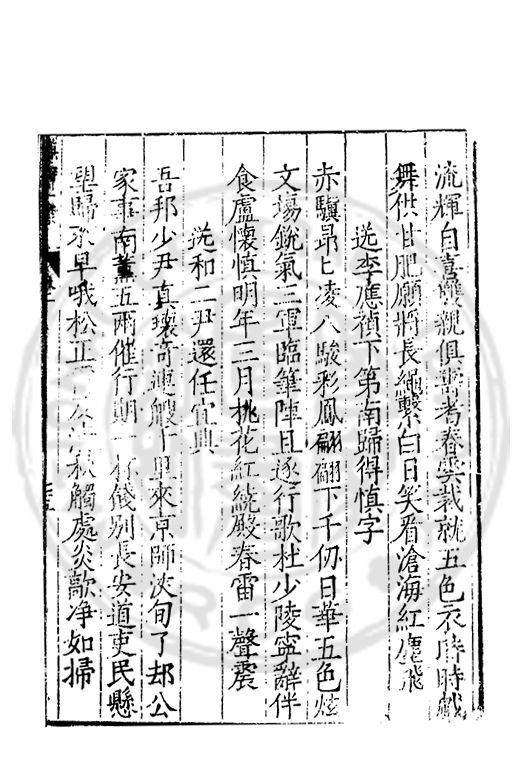 流輝自喜雙親俱壽考春雲裁就五色衣時時戲
舞供甘肥願將長繩繫白日笑看滄海紅塵飛
送李應禎下第南歸得慎字
赤驥昂匕凌八駿彩鳳翩翩下千仞日華五色炫
文場銳氣三軍臨筆陣且逐行歌杜少陵寧辭伴
食盧懷慎明年三月桃花紅繞殿春雷一聲震
送和二尹還任宜興
吾邦少尹真瓌奇連艘十里來京師浹旬了却公
家事南薰五兩催行期一杯餞別長安道吏民懸
望歸來早哦松正 秋觸處炎歊净如掃